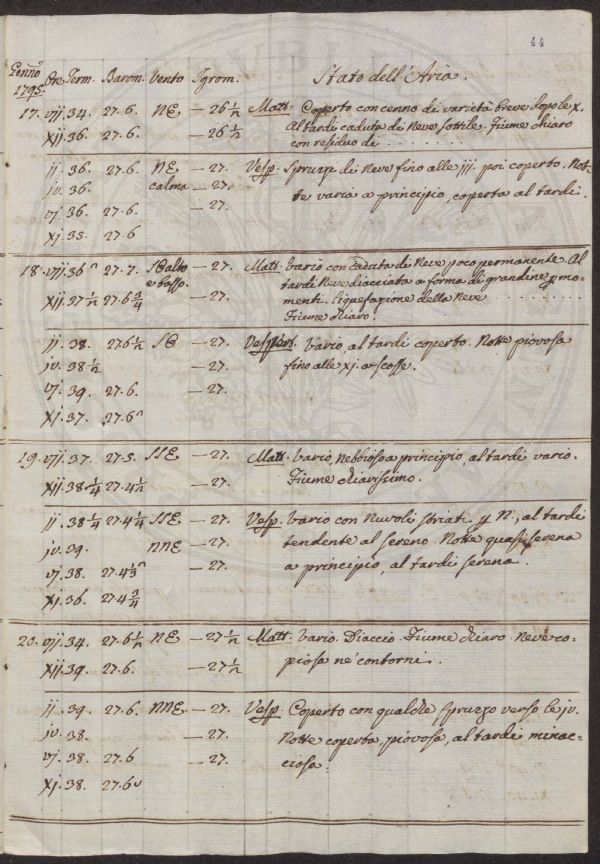 44
Genn.o
1795. Ore. Term. Barom. Vento Igrom. Stato dell'Aria.
17. vij. 34. 27.6. NE — 26 1/2 Matt. Coperto con cenno di varietà breve dopo le x.
Al tardi caduta di Neve sottile. Fiume chiaro
xij. 36. 27.6. — 26 1/2
con residuo di
ij. 36. 27.6. NE — 27. Vesp. Spruzzi di Neve fino alle iij. poi coperto. Not-
iv. 36. calma — 27. te varia a principio, coperta al tardi.
vj. 36. 27.6. — 27.
xj. 35. 27.6
18. vij. 36 27.7. SE alto — 27. Matt. Vario con caduta di Neve poco permanente. Al
e basso. tardi Neve diacciata a forma di grandine p mo-
xij. 37 1/2 27.6 3/4 — 27. menti. Liquefazione della Neve
Fiume chiaro.
ij. 38. 27.6 1/2 SE — 27. Vesp. Vario, al tardi coperto. Notte piovosa
iv. 38 1/2 — 27. fino alle xj. a scosse.
vj. 39. 27.6. — 27.
xj. 37. 27.6
19. vij. 37. 27.5. SSE — 27. Matt. Vario, Nebbioso a principio, al tardi vario.
xij. 38 1/4 27.4 1/2 — 27. Fiume chiarissimo.
ij. 38 1/4 27.4 1/4 SSE — 27. Vesp. Vario con Nuvoli striati p N., al tardi
iv. 39. NNE — 27. tendente al sereno. Notte quasi serena
vj. 38. 27.4 1/3 — 27. a principio, al tardi serena.
xj. 36. 27.4 3/4
20. vij. 34. 27.6 1/2 NE — 27 1/2 Matt. Vario. Diaccio. Fiume chiaro. Neve co-
xij. 39. 27.6. — 27 1/2 piosa ne' contorni.
ij. 39. 27.6. NNE — 27. Vesp. Coperto con qualche spruzzo verso le iv.
iv. 38. — 27. Notte coperta, piovosa, al tardi minac-
vj. 38. 27.6 — 27. ciosa.
xj. 38. 27.6